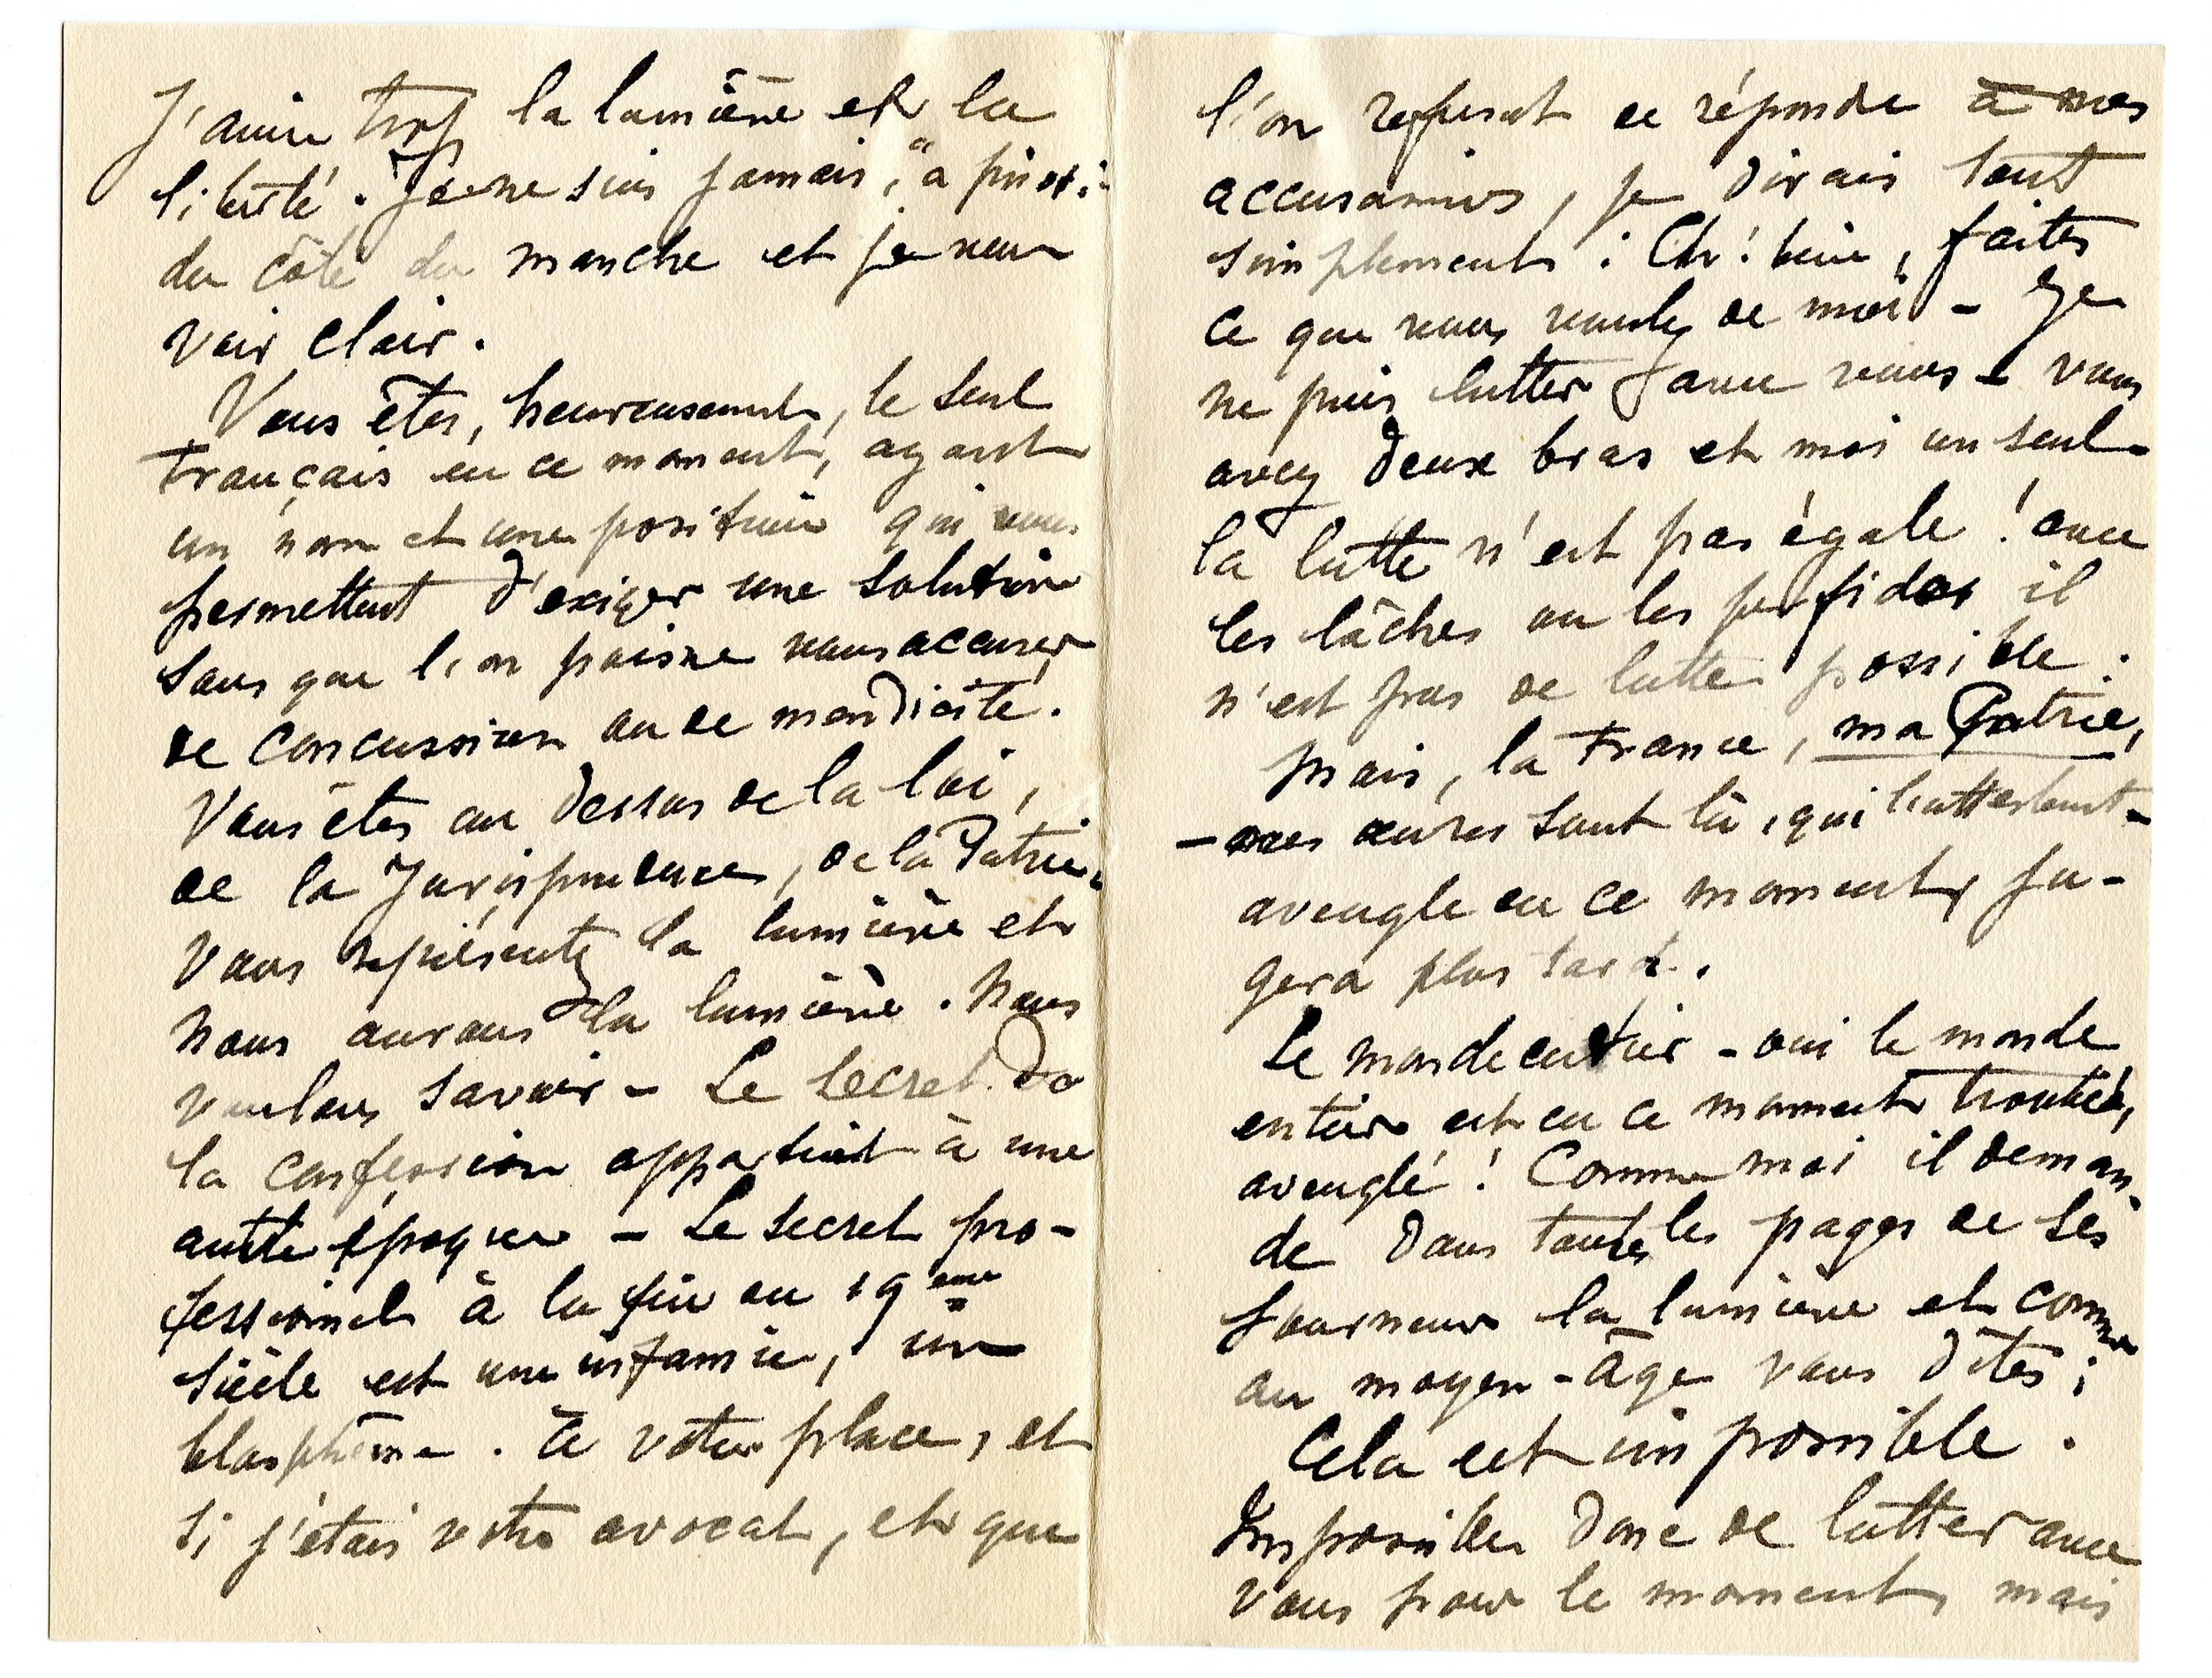 J'aime trop la lumière et la
liberté. Je ne suis jamais, "à priori
du côté du manche et je veux
voir clair.
Vous êtes, heureusement, le seul
Français en ce moment, ayant
un nom et une position qui vous
permettent d'exiger une solution
sans que l'on puisse vous accuser
de concussion ou de mendicité.
Vous êtes au dessus de la loi,
de la Jurisprudence, de la Patrie.
Vous représentez la lumière et
nous aurons la lumière. Nous
voulons savoir - Le secret de
la confession appartient à une
autre époque - Le secret pro-
fessionnel à la fin du 19ème
siècle est une infamie, un
blasphème. à votre place, et
si j'étais votre avocat, et que
l'on refusat de répondre à mes
accusations, je dirais tout
simplement : Eh! bien, faites
ce que vous voulez de moi - Je
ne puis lutter avec vous - vous
avez deux bras et moi un seul -
la lutte n'est pas égale! avec
les lâches ou les perfides il
n'est pas de lutte possible.
Mais, la France, ma Patrie,
- mes œuvres sont là, qui l'attestent -
aveugle en ce moment, ju-
gera plus tard.
Le monde entier - oui le monde
entier est en ce moment troublé,
aveuglé! Comme moi il deman-
de dans toutes les pages de ses
journaux la lumière et comme
au moyen-âge vous dites ;
Cela est impossible.
Impossible donc de lutter avec
vous pour le moment, mais